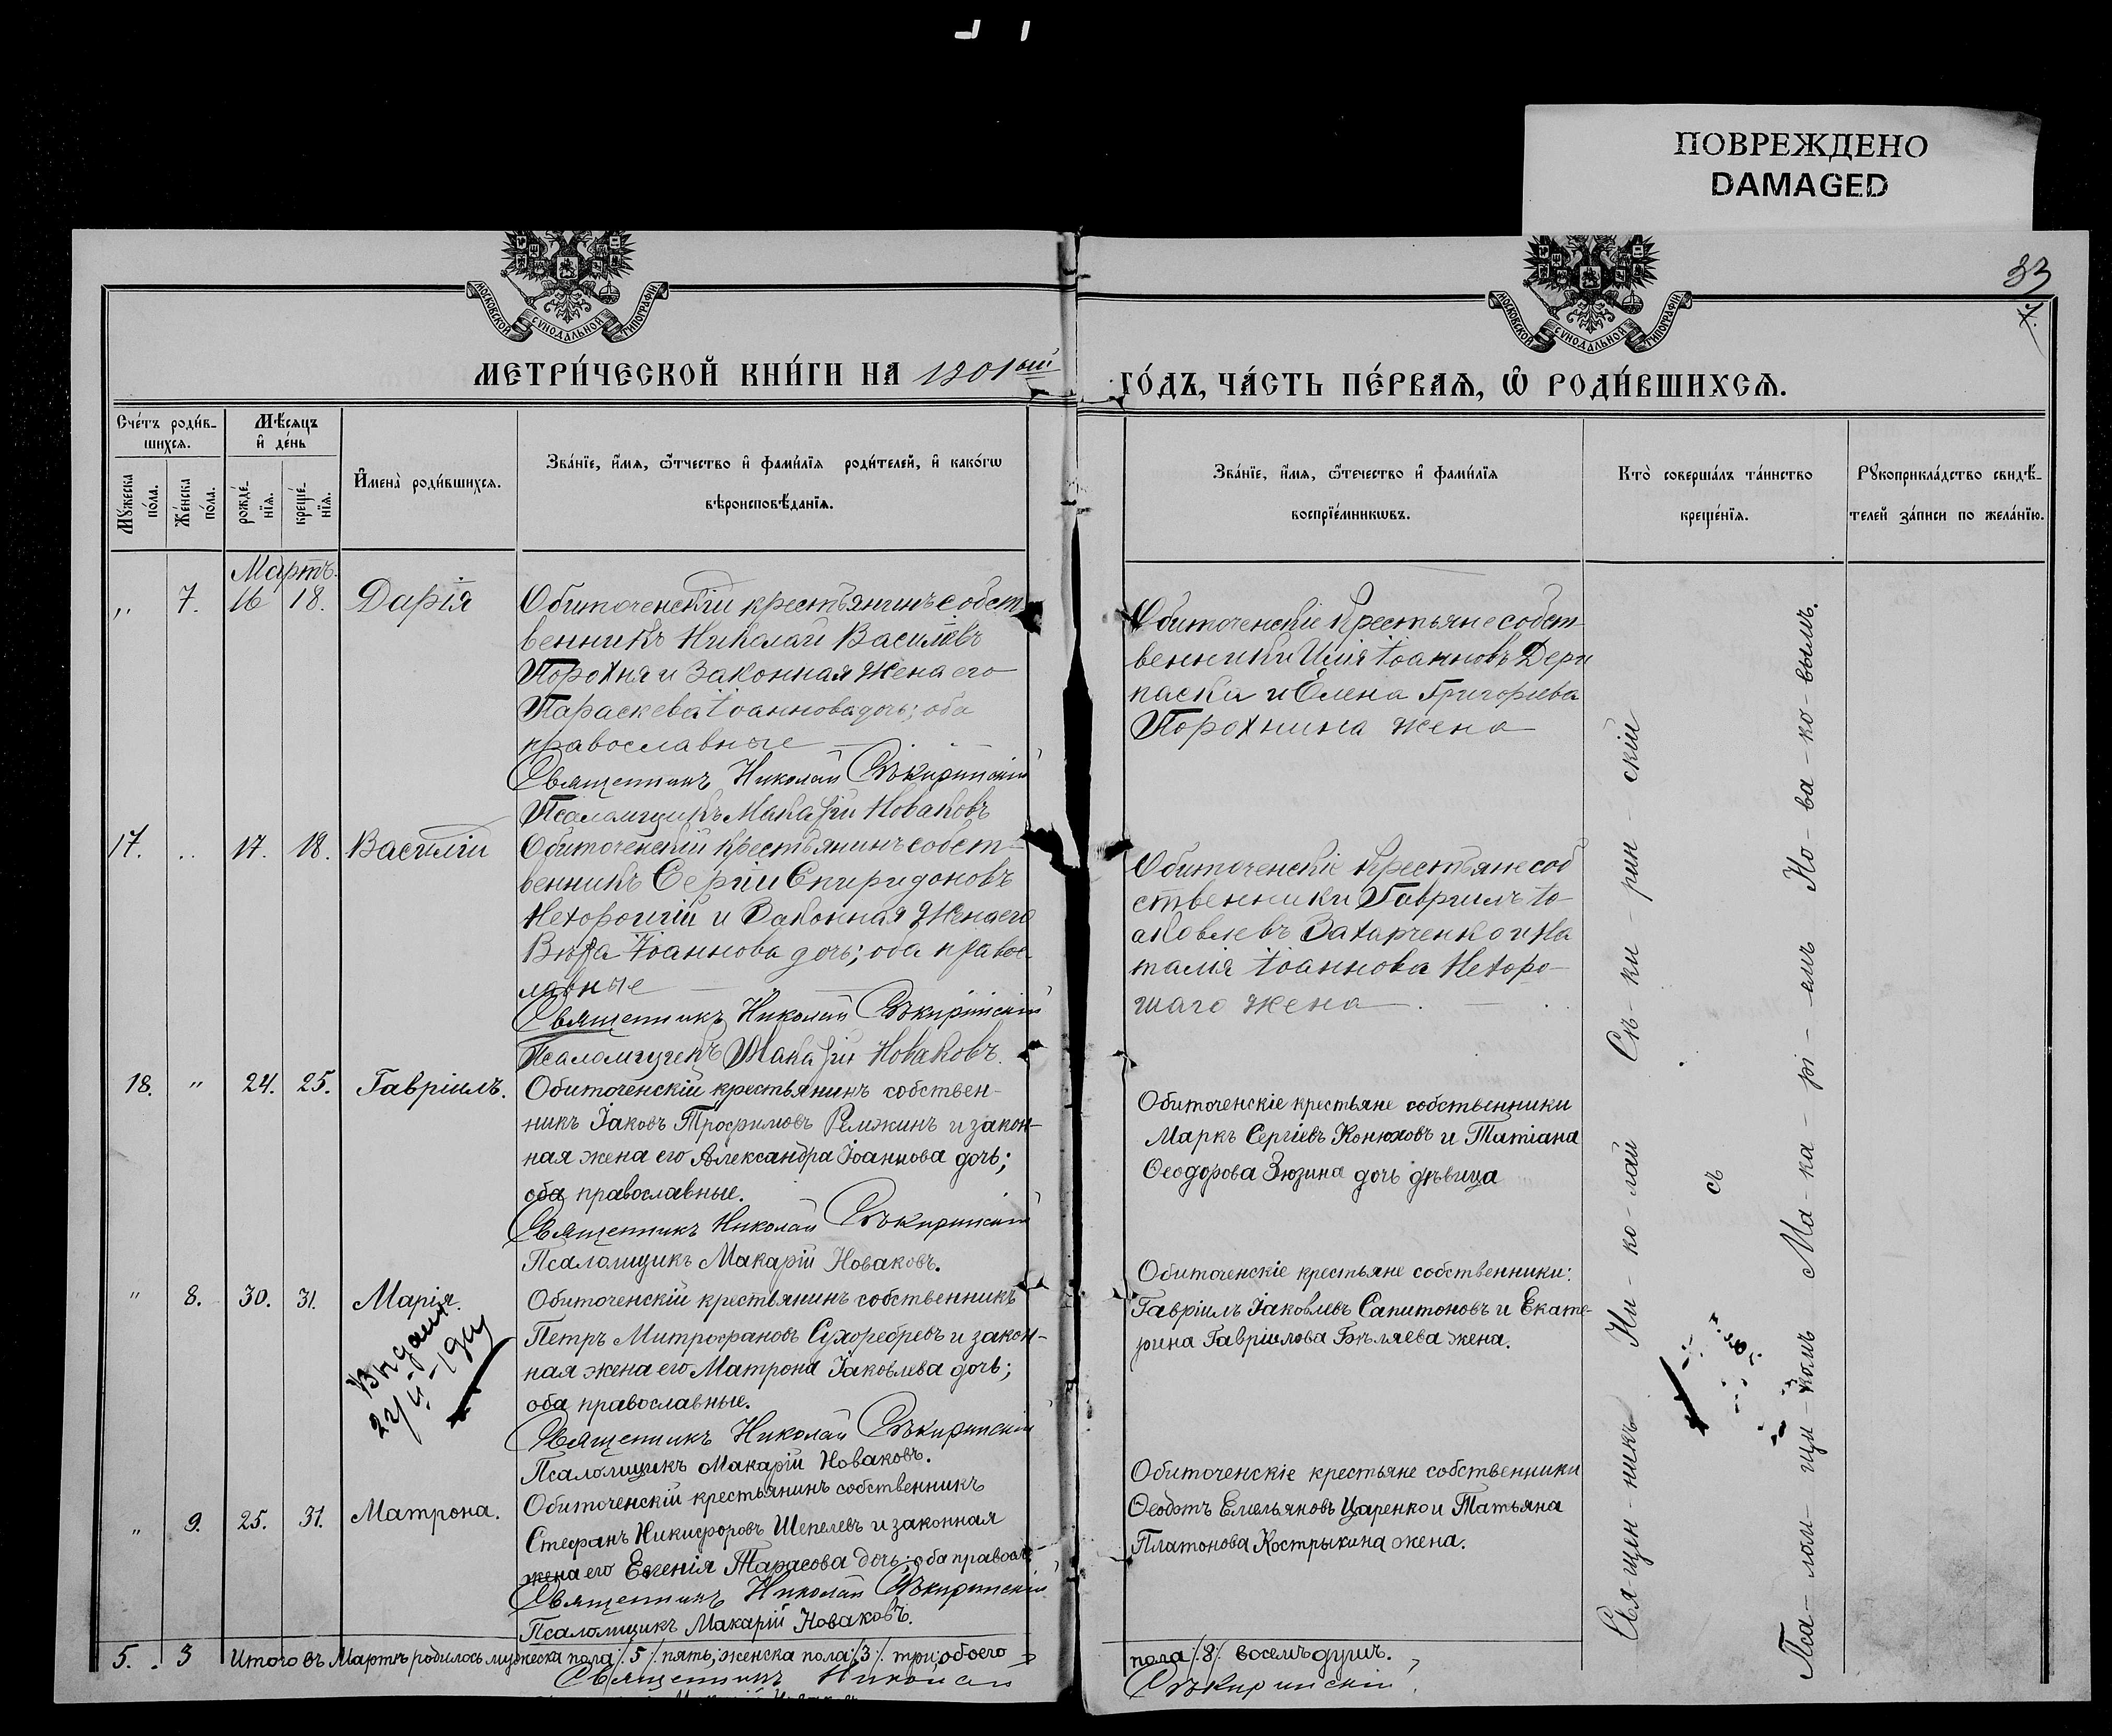 ПОВРЕЖДЕНО
DAMAGED
МОСКОВСКОЙ СУНОДАЛЬНОЙ ТИПОГРАФІИ
МОСКОВСКОЙ СУНОДАЛЬНОЙ ТИПОГРАФІИ
33
7.
МЕТРИ́ЧЕСКОЙ КНИ́ГИ НА 1901ый
ГО́ДЪ, ЧА́СТЬ ПЕ́РВАѦ, Ѡ РОДИ́ВШИХСѦ.
Сче́тъ роди́в-
шихсѧ.
Мѣ́сѧцъ
и҆ де́нь
Мꙋ́жеска
по́ла.
Же́нска
по́ла.
рожде́-
нїѧ.
креще́-
нїѧ.
И҆мена̀ роди́вшихсѧ.
Зва́нїе, и҆́мѧ, ѻ҆́тчество и҆ фами́лїѧ родителей, и҆ како́гѡ
вѣроисповѣ́данїѧ.
Зва́нїе, и҆́мѧ, ѻ҆те́чество и҆ фами́лїѧ
воспрїе́мникѡвъ.
Кто̀ соверша́лъ та́инство
креще́нїѧ.
Рꙋкоприкла́дство свидѣ́-
телей за́писи по жела́нїю.
Мартъ.
„ 7. 16 18. Дарія
Обиточенскій крестьянинъ собст
венникъ Николай Василіевъ
Порохня и законная жена его
Параскева Іоаннова дочь; оба
православные
Священникъ Николай Съкиринскій
Псаломщикъ Макарій Новаковъ
Обиточенскіе крестьяне собст-
венники Илія Іоанновъ Дери
паска и Елена Григоріева
Порохнина жена
17. „ 17. 18. Василій
Обиточенскій крестьянинъ собст-
венникъ Сергій Спиридоновъ
Нехорошій и законная жена его
Вѣра Іоаннова дочь; оба правос
лавные
Священникъ Николай Съкиринскій
Псаломщикъ Макарій Новаковъ.
Обиточенскіе крестьяне соб
ственники Гавріилъ Іо-
аковлевъ Захарченко и На
талія Іоаннова Нехоро-
шаго жена
18. „ 24. 25. Гавріилъ.
Обиточенскій крестьянинъ собствен-
никъ Іаковъ Трофимовъ Ремжинъ и закон-
ная жена его Александра Іоаннова дочь;
оба православные.
Священникъ Николай Съкиринскій
Псаломщикъ Макарій Новаковъ.
Обиточенскіе крестьяне собственники
Маркъ Сергіевъ Конюховъ и Татіана
Ѳеодорова Зюзина дочь дѣвица
„ 8. 30. 31. Марія.
Обиточенскій крестьянинъ собственникъ
Петръ Митрофановъ Сухоребревъ и закон-
ная жена его Матрона Іаковлева дочь;
оба православные.
Священникъ Николай Съкиринскій
Псаломщикъ Макарій Новаковъ.
Обиточенскіе крестьяне собственники:
Гавріилъ Іаковлевъ Сапитоновъ и Екате-
рина Гавріилова Бѣляева жена.
„ 9. 25. 31. Матрона.
Обиточенскій крестьянинъ собственникъ
Стефанъ Никифоровъ Шепелевъ и законная
жена его Евгенія Тарасова дочь; оба правосл.
Священникъ Николай Съкиринскій
Псаломщикъ Макарій Новаковъ.
Обиточенскіе крестьяне собственники
Ѳеодотъ Емельяновъ Царенко и Татьяна
Платонова Кострыкина жена.
Свя-щен-никъ Ни-ко-лай Съ-ки-рин-скій
съ
Пса-лом-щи-комъ Ма-ка-рі-емъ Но-ва-ко-вымъ.
5. . 3 Итого въ Мартѣ родилось мужеска пола /.5/. пять, женска пола /.3/. три; обоего
пола /.8/. восемь душъ.
Священникъ Николай
Съкиринскій